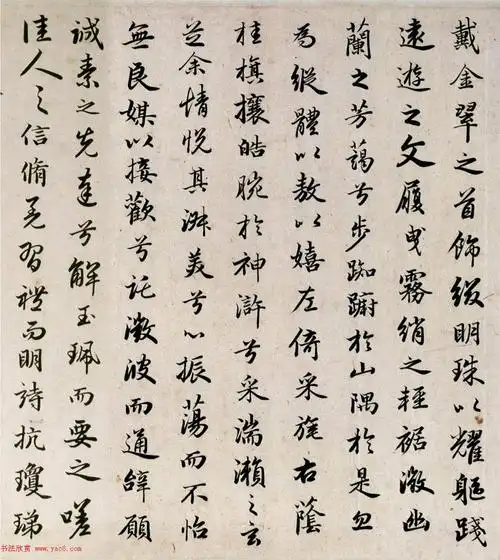 戴金翠之首飾綴明珠以耀軀踐
遠遊之文履曳霧綃之輕裾微幽
蘭之芳藹兮步踟躕於山隅於是忽
焉縱體以敖以嬉左倚采旄右蔭
桂旗攘皓腕於神滸兮采湍瀨之玄
芝余情悅其淑美兮心振蕩而不怡
無良媒以接歡兮託微波而通辭願
誠素之先達兮解玉珮而要之嗟
佳人之信脩羌習禮而明詩抗瓊珶
书法欣赏 www.yac8.com